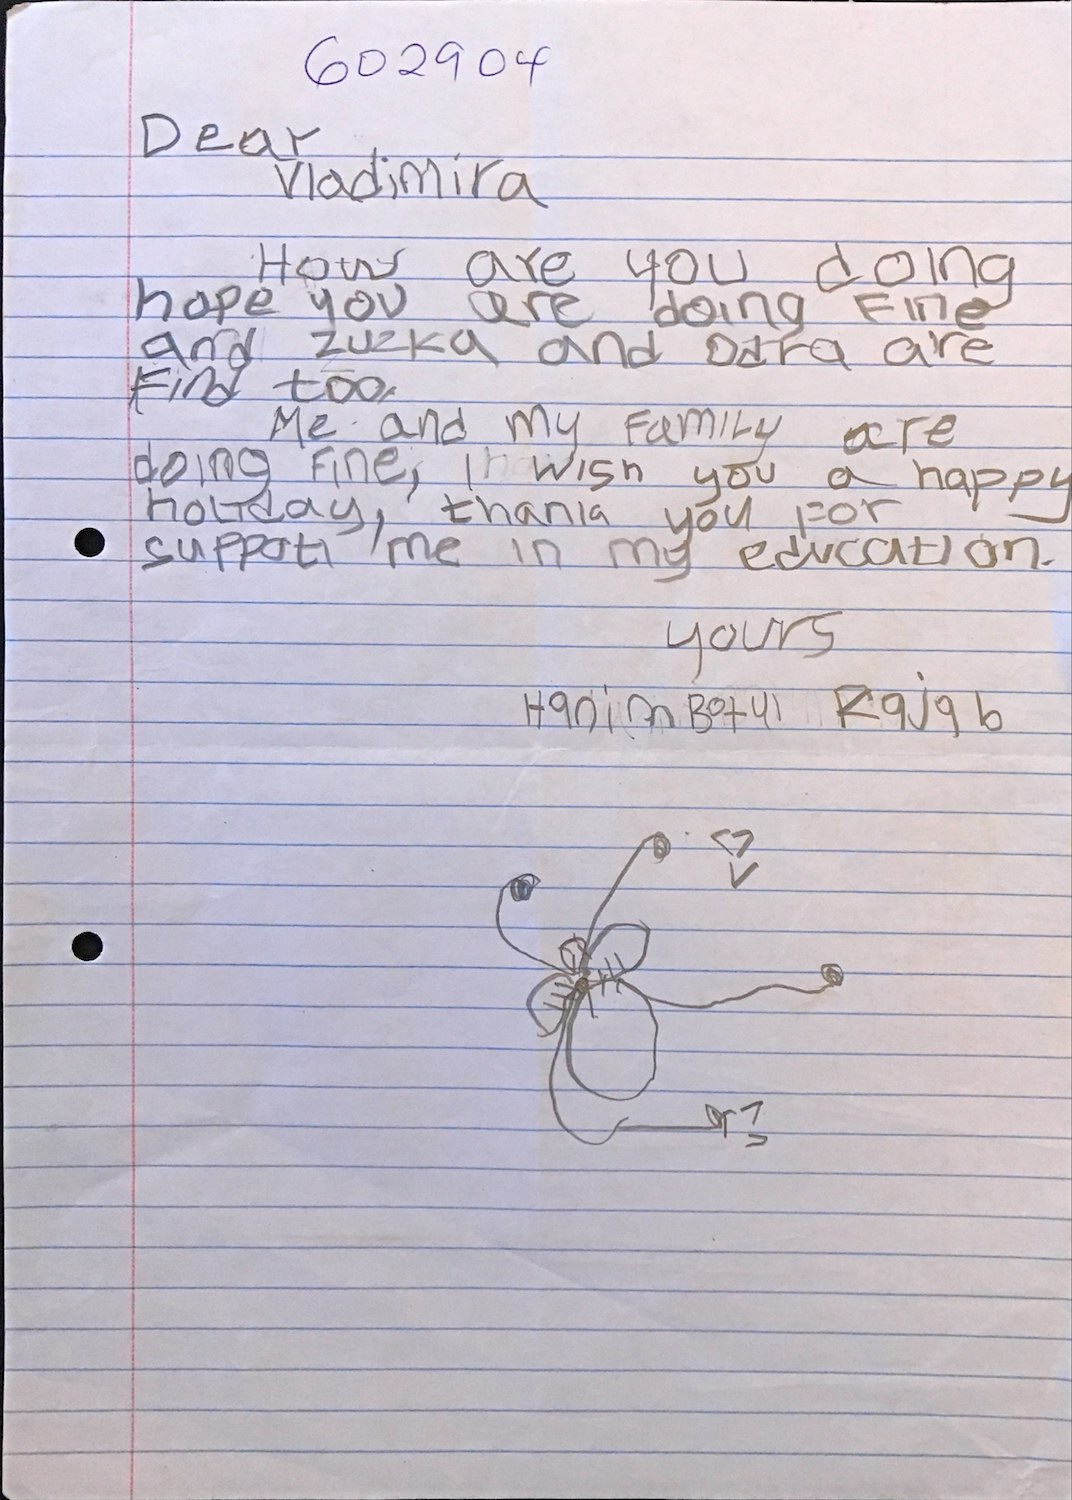 602904
Dear
Vladimira
How are you doing
hope you are doing Fine
and zuzka and Odra are
Find too.
Me and my Family are
doing Fine, I wish you a happy
holiday, thank you For
support me in my education.
yours
Hanim Batul Rajab